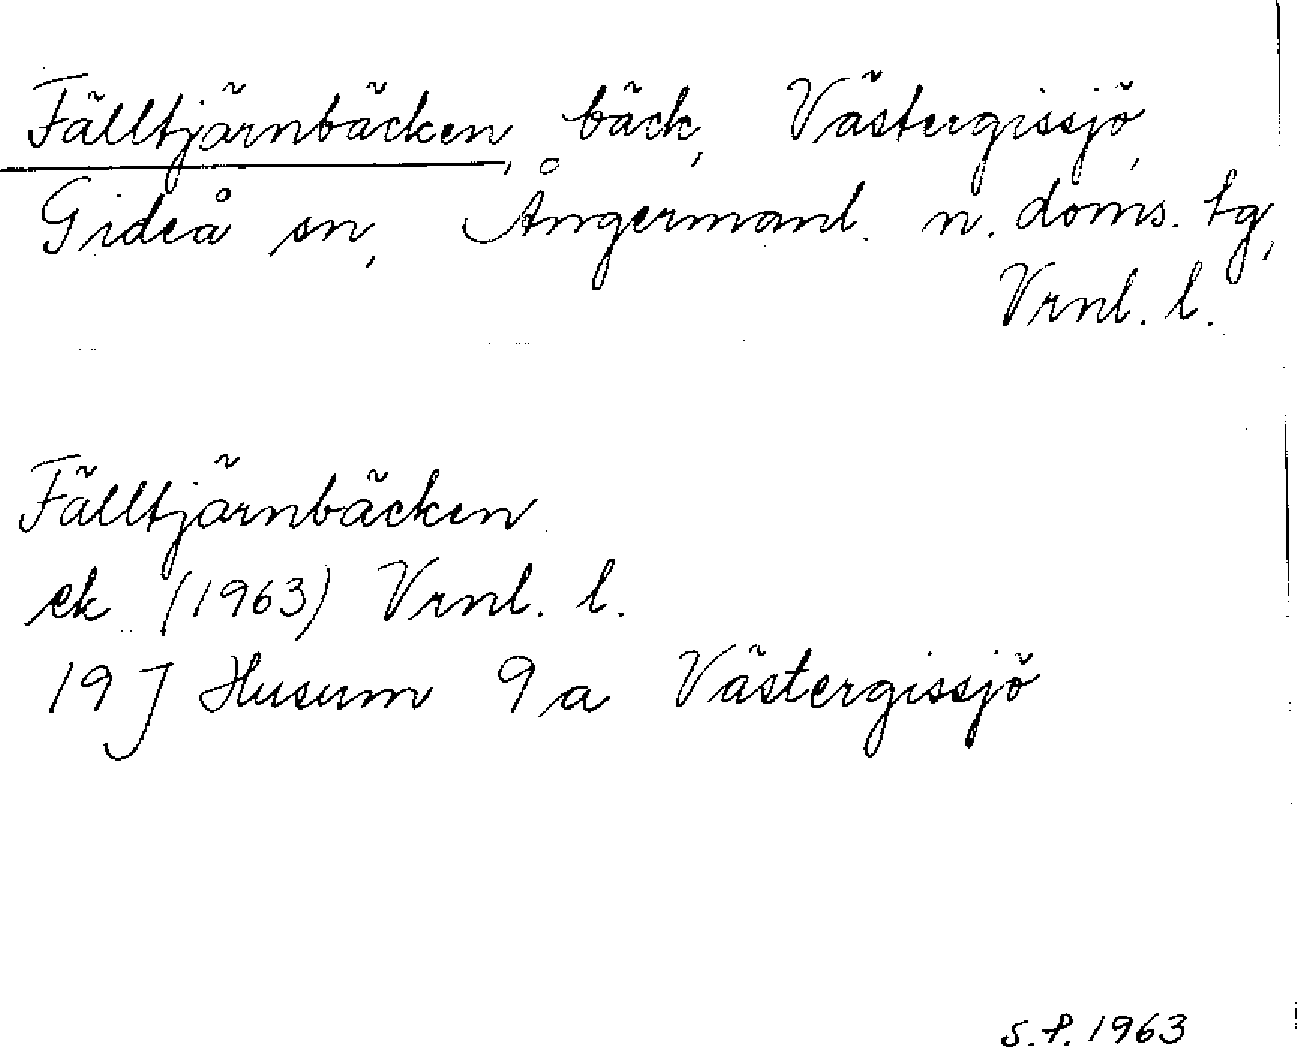 Fälltjärnbäcken, bäck, Västergissjö,
Gideå sn, Ångermanl. n. doms. tg,
Vrnl. l.
Fälltjärnbäcken
ek (1963) Vrnl. l.
19 J Husum 9 a Västergissjö
S.P. 1963